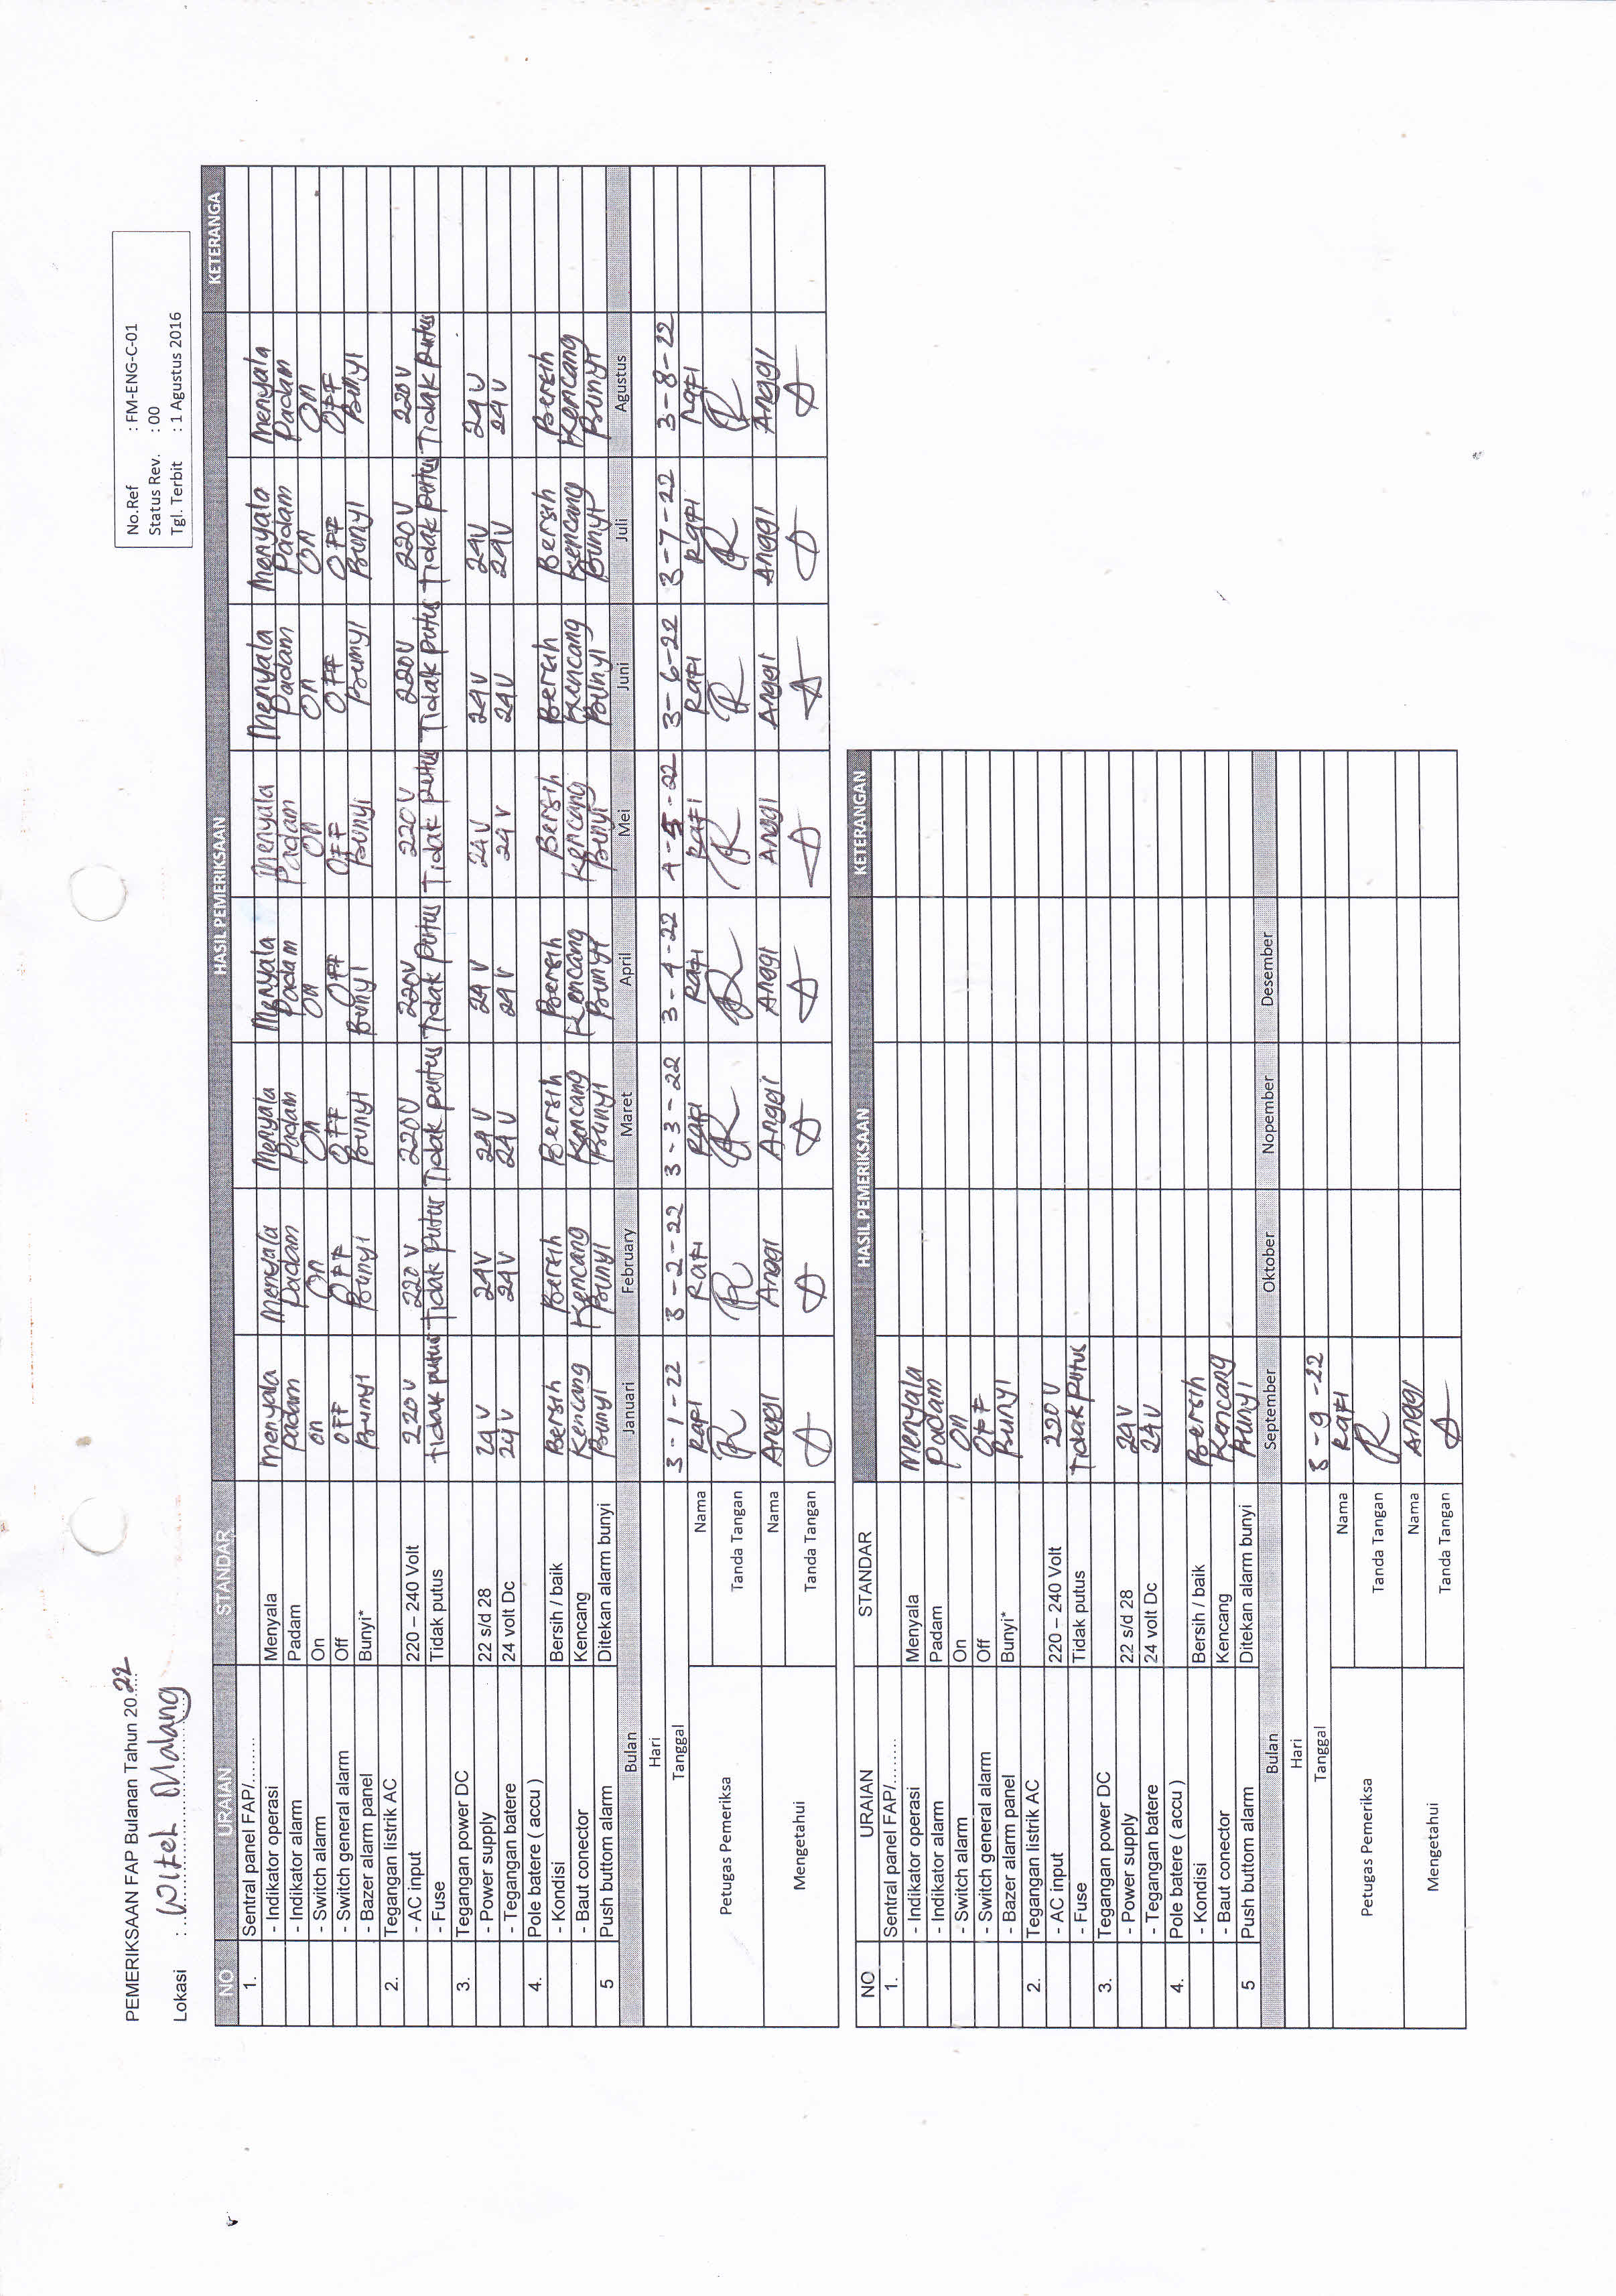 PEMERIKSAAN FAP Bulanan Tahun 20.22
No.Ref : FM-ENG-C-01
Status Rev. : 00
Lokasi : Witel Malang
Tgl. Terbit : 1 Agustus 2016
NO URAIAN STANDAR HASIL PEMERIKSAAN KETERANGA
1. Sentral panel FAP/........
- Indikator operasi Menyala Menyala Menyala Menyala Menyala Menyala Menyala Menyala Menyala
- Indikator alarm Padam Padam Padam Padam Padam Padam Padam Padam Padam
- Switch alarm On on On On On On On On On
- Switch general alarm Off OFF OFF OFF OFF OFF OFF OFF OFF
- Bazer alarm panel Bunyi* Bunyi Bunyi Bunyi Bunyi Bunyi Bunyi Bunyi Bunyi
2. Tegangan listrik AC
- AC input 220 – 240 Volt 220 V 220 V 220V 220V 220 V 220V 220 V 220 V
- Fuse Tidak putus tidak putus Tidak Putus Tidak putus Tidak Putus Tidak Putus Tidak putus Tidak putus Tidak Putus
3. Tegangan power DC
- Power supply 22 s/d 28 24 V 24V 24 V 24 V 24 V 24V 24V 24 V
- Tegangan batere 24 volt Dc 24 V 24V 24 V 24 V 24 V 24V 24V 24 V
4. Pole batere ( accu )
- Kondisi Bersih / baik Bersih Bersih Bersih Bersih Bersih Bersih Bersih Bersih
- Baut conector Kencang Kencang Kencang Kencang Kencang Kencang Kencang Kencang Kencang
5 Push buttom alarm Ditekan alarm bunyi Bunyi Bunyi Bunyi Bunyi Bunyi Bunyi Bunyi Bunyi
Bulan Januari February Maret April Mei Juni Juli Agustus
Hari
Tanggal 3-1-22 3-2-22 3-3-22 3-4-22 4-5-22 3-6-22 3-7-22 3-8-22
Petugas Pemeriksa Nama Rafi Rafi Rafi Rafi Rafi Rafi Rafi Rafi
Tanda Tangan
Mengetahui Nama Anggi Anggi Anggi Anggi Anggi Anggi Anggi Anggi
Tanda Tangan
NO URAIAN STANDAR HASIL PEMERIKSAAN KETERANGAN
1. Sentral panel FAP/........
- Indikator operasi Menyala Menyala
- Indikator alarm Padam Padam
- Switch alarm On On
- Switch general alarm Off OFF
- Bazer alarm panel Bunyi* Bunyi
2. Tegangan listrik AC
- AC input 220 – 240 Volt 220 V
- Fuse Tidak putus Tidak Putus
3. Tegangan power DC
- Power supply 22 s/d 28 24 V
- Tegangan batere 24 volt Dc 24 V
4. Pole batere ( accu )
- Kondisi Bersih / baik Bersih
- Baut conector Kencang Kencang
5 Push buttom alarm Ditekan alarm bunyi Bunyi
Bulan September Oktober Nopember Desember
Hari
Tanggal 8-9-22
Petugas Pemeriksa Nama Rafi
Tanda Tangan
Mengetahui Nama Anggi
Tanda Tangan